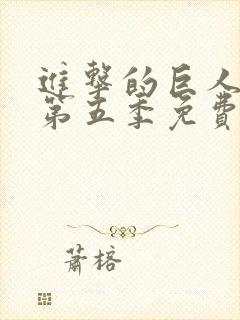 進擊的巨人
第五季免費
蕭榕